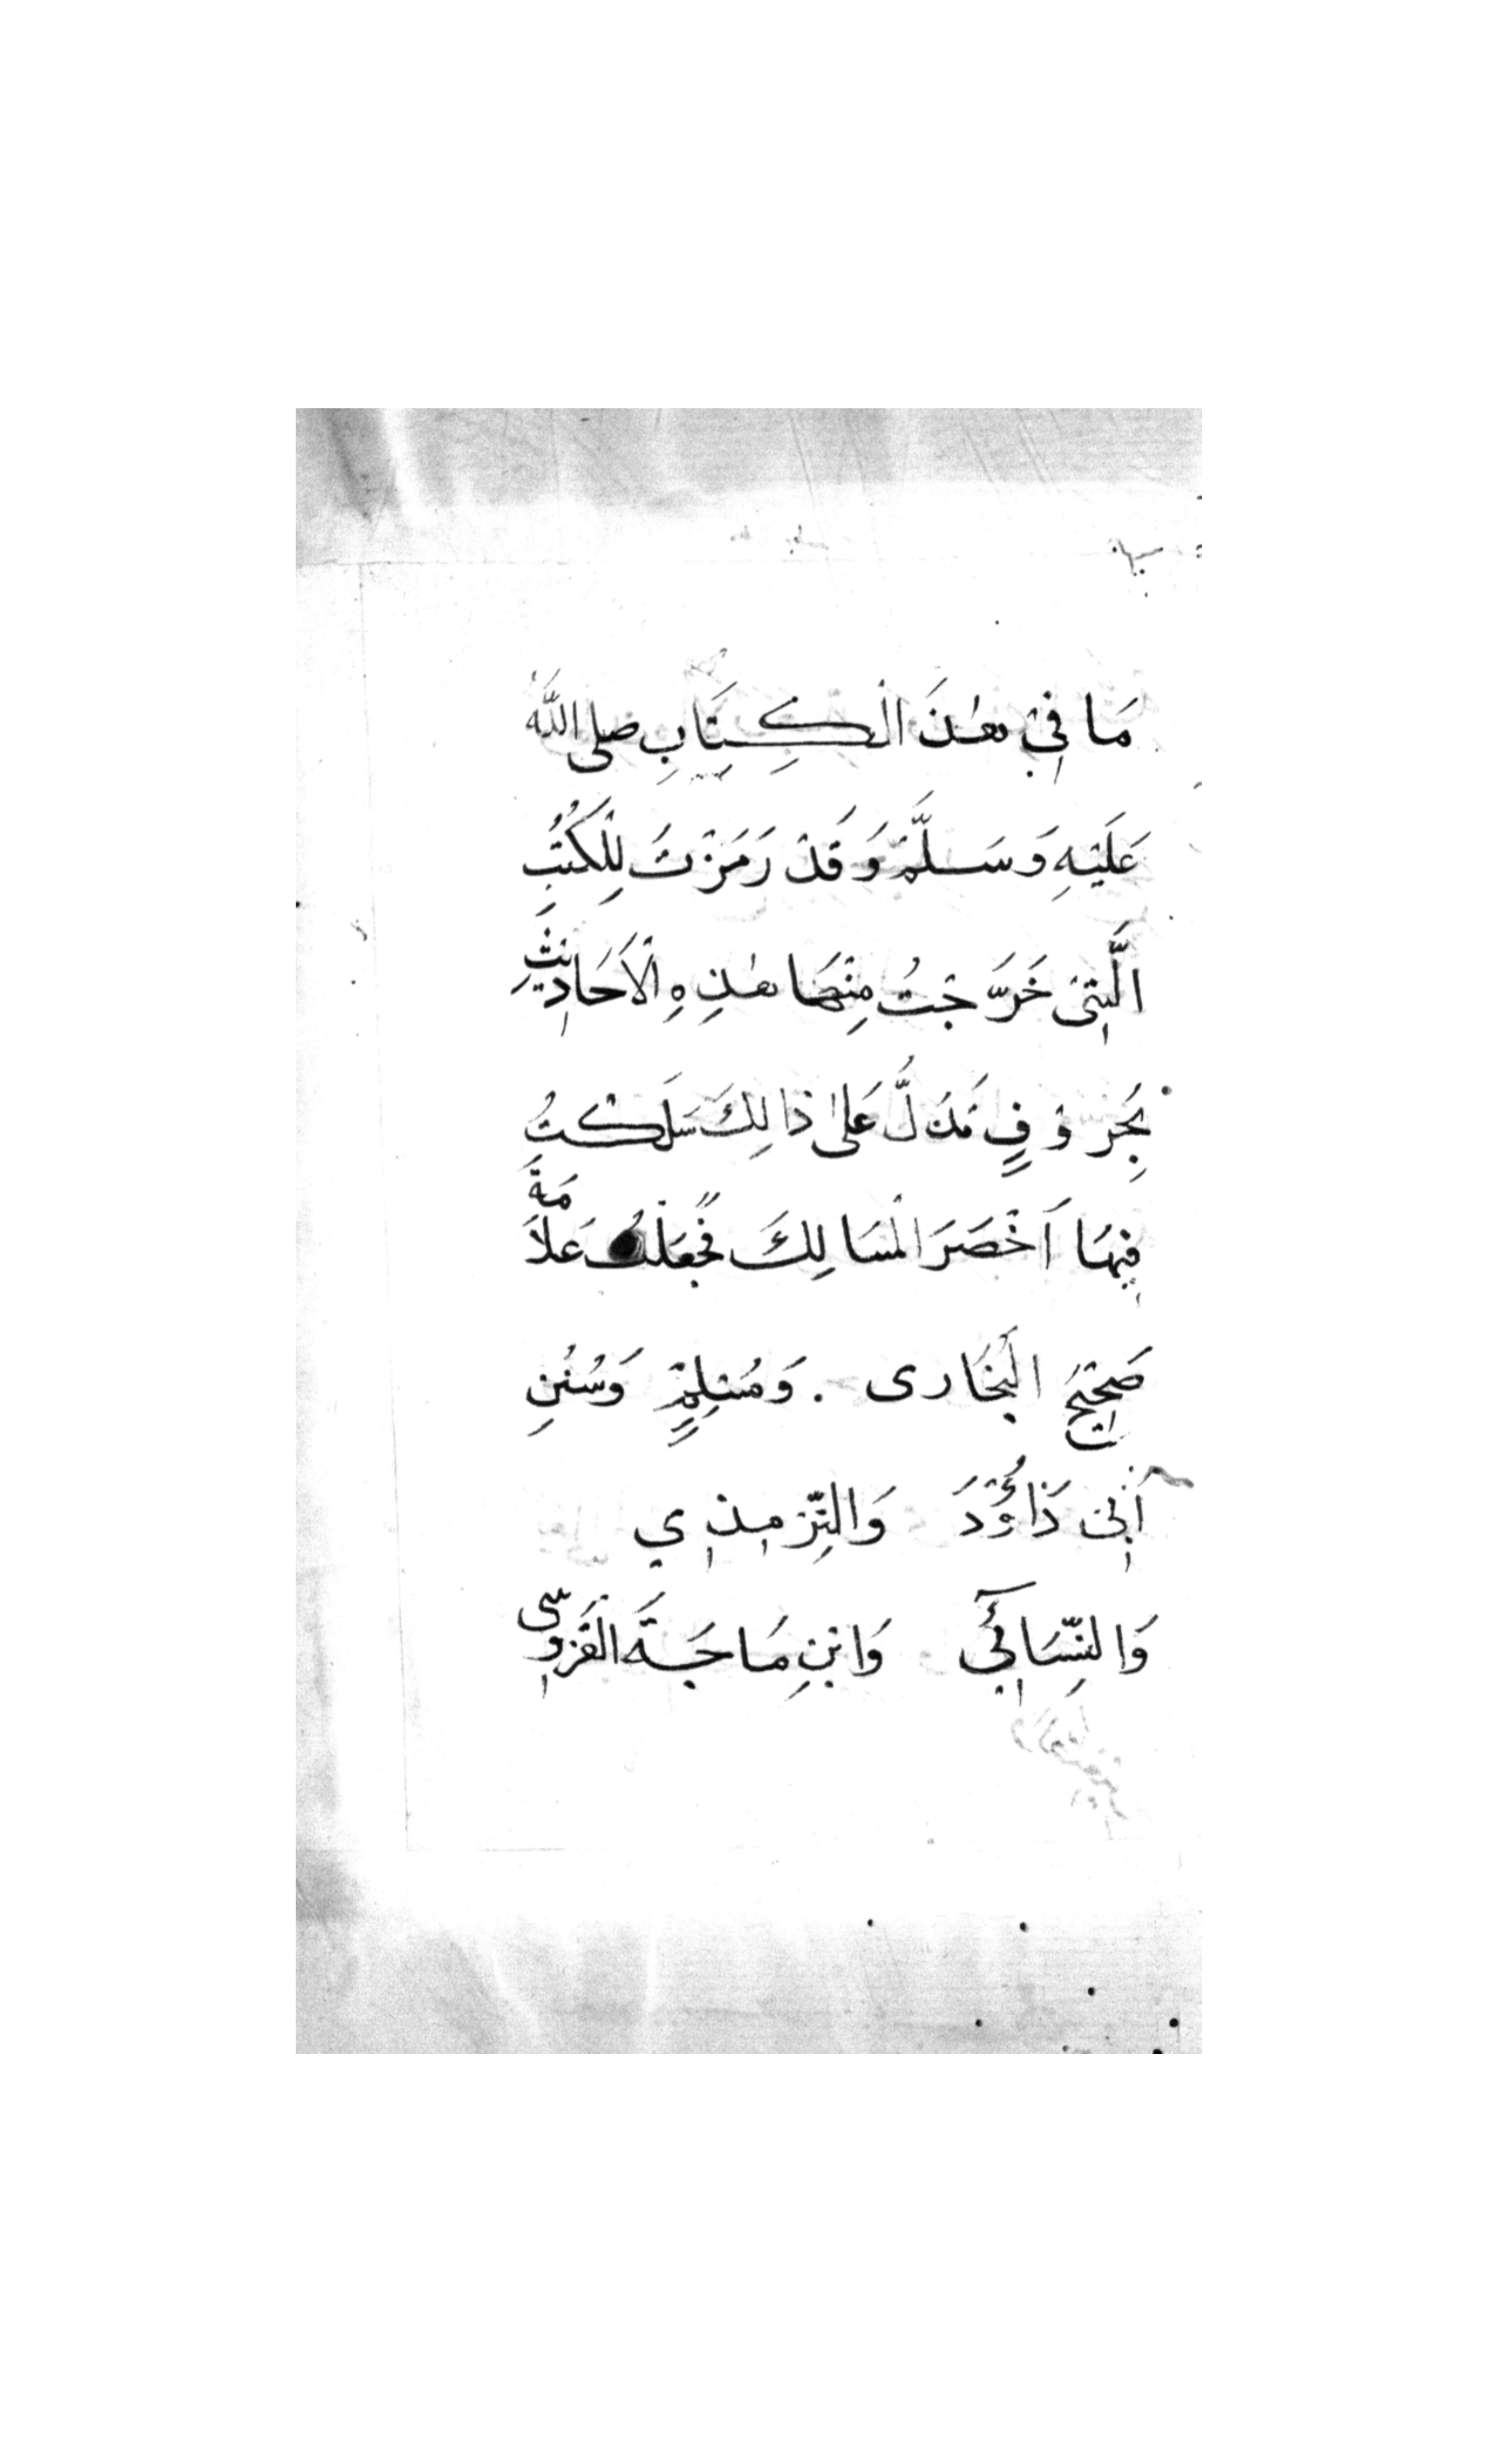 مَا فِيْ هٰذَ الْكِتَابِ صلى اللّٰه
عَلَيْهِ وَسَلَّمْ وَقَدْ رَمَزْتَ لِلْكُتُبِ
الَّتِيْ خَرَّجْتُ مِنْهَا هٰذِهِ الْاَحَادِيْثِ
بِحُرُوْفٍ تَدَلُّ عَلىٰ ذَالِكَ سَلَكْتُ
فِيْهَا اَخْصَرَ الْمَسَالِكَ فَجَعَلْتُ عَلَامَةَ
صَحِيْحَ الْبُخَارى . وَمُسْلِمٍ وَسُنُنِ
اَبِىْ دَاؤُدَ وَالتِّرْمِذِي
وَالنِّسَائِي وَابْنِ مَاجَةَ الْقَزْوِ